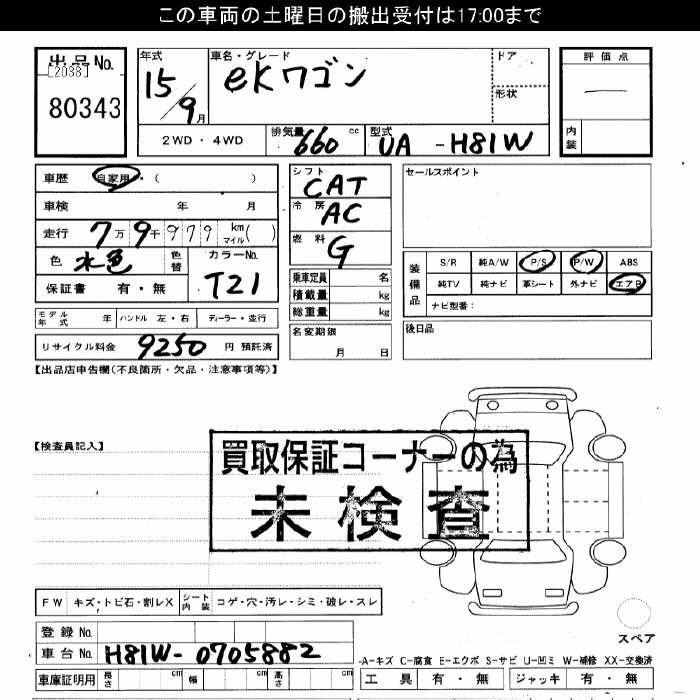 この車両の土曜日の搬出受付は17:00まで
出品No.
[2038]
80343
年式
15/9月
車名・グレード
eKワゴン
ドア
形状
評価点
内装
2WD・4WD
排気量 660 cc
型式 UA -H81W
車歴 自家用・( )
車検 年 月
走行 7万9千979 km マイル( )
色 水色 色替
カラーNo. T21
保証書 有・無
モデル年式 年 ハンドル 左・右 ディーラー・並行
リサイクル料金 9250 円 預託済
シフト CAT
冷房 AC
燃料 G
乗車定員 名
積載量 kg
総重量 kg
名変期限
月 日
セールスポイント
装備品
S/R 純A/W P/S P/W ABS
純TV 純ナビ 革シート 外ナビ エアB
ナビ型番:
後日品
【出品店申告欄(不良箇所・欠品・注意事項等)】
【検査員記入】
買取保証コーナーの為
未検査
FW キズ・トビ石・割レX シート内装 コゲ・穴・汚レ・シミ・破レ・スレ
登録No.
車台No. H81W-0705882
車庫証明用 長さ cm 幅 cm 高さ cm
スペア
-A-キズ C-腐食 E-エクボ S-サビ U-凹ミ W-補修 XX-交換済
工具 有・無 ジャッキ 有・無